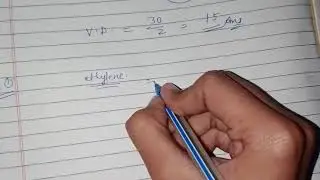 V.D. = 30/2 = 15 Ans
① ethylene -